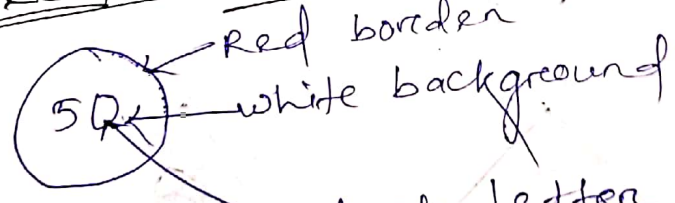 Red borden
50
white background
letter